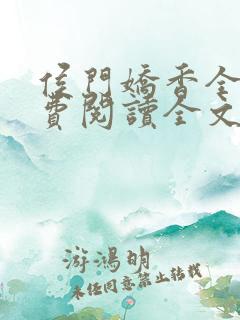 侯門嬌香全
費閱讀全文
游鴻明
未经同意禁止转载